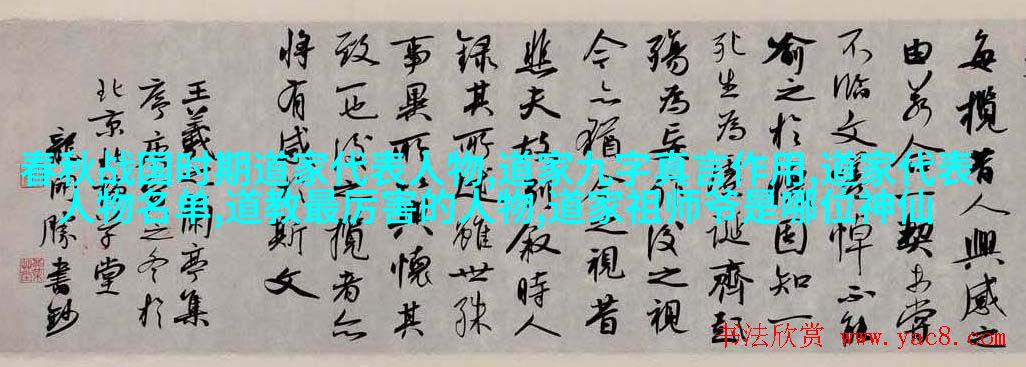 每攬昔人興感之
由若合一契未嘗
不臨文嗟悼不能
喻之於懷固知一
死生為虛誕齊彭
殤為妄作後之視
今亦猶今之視昔
悲夫故列叙時人
錄其所述雖世殊
事異所以興懷其
致一也後之攬者亦
將有感於斯文
王羲之蘭亭集
序之冬於
北京堂
龍開勝書鈔
春秋战国时期道家代表人物,道家九字真言作用,道家代表
人物名单,道教最厉害的人物,道家祖师爷是哪位神仙
书法欣赏
www.yac8.com